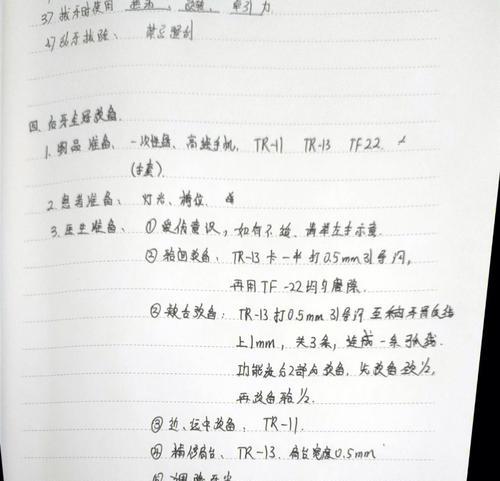 3) 拔牙时使用 牵引力
4) 乱牙拔除、
四. 后牙全冠预备.
1. 物品准备、一次性器、高速手机, TR-11 TR-13 TF22.
(手套)
2. 患者准备、灯光、椅位.
3. 医生准备、① 爱伤意识, 如有不适、请举左手示意.
② 颌面预备: TR-13 卡一半打0.5mm引导沟,
再用TF-22均匀磨除.
③ 颊舌预备: TR-13 打0.5mm引导沟至
上1mm, 共3条, 连成一条弧线.
功能尖分2部分预备. 先预备颈1/2,
再预备𬌗1/2.
③ 近、远中预备: TR-11.
④ 精修肩台、TR-13. 肩台宽度0.5mm